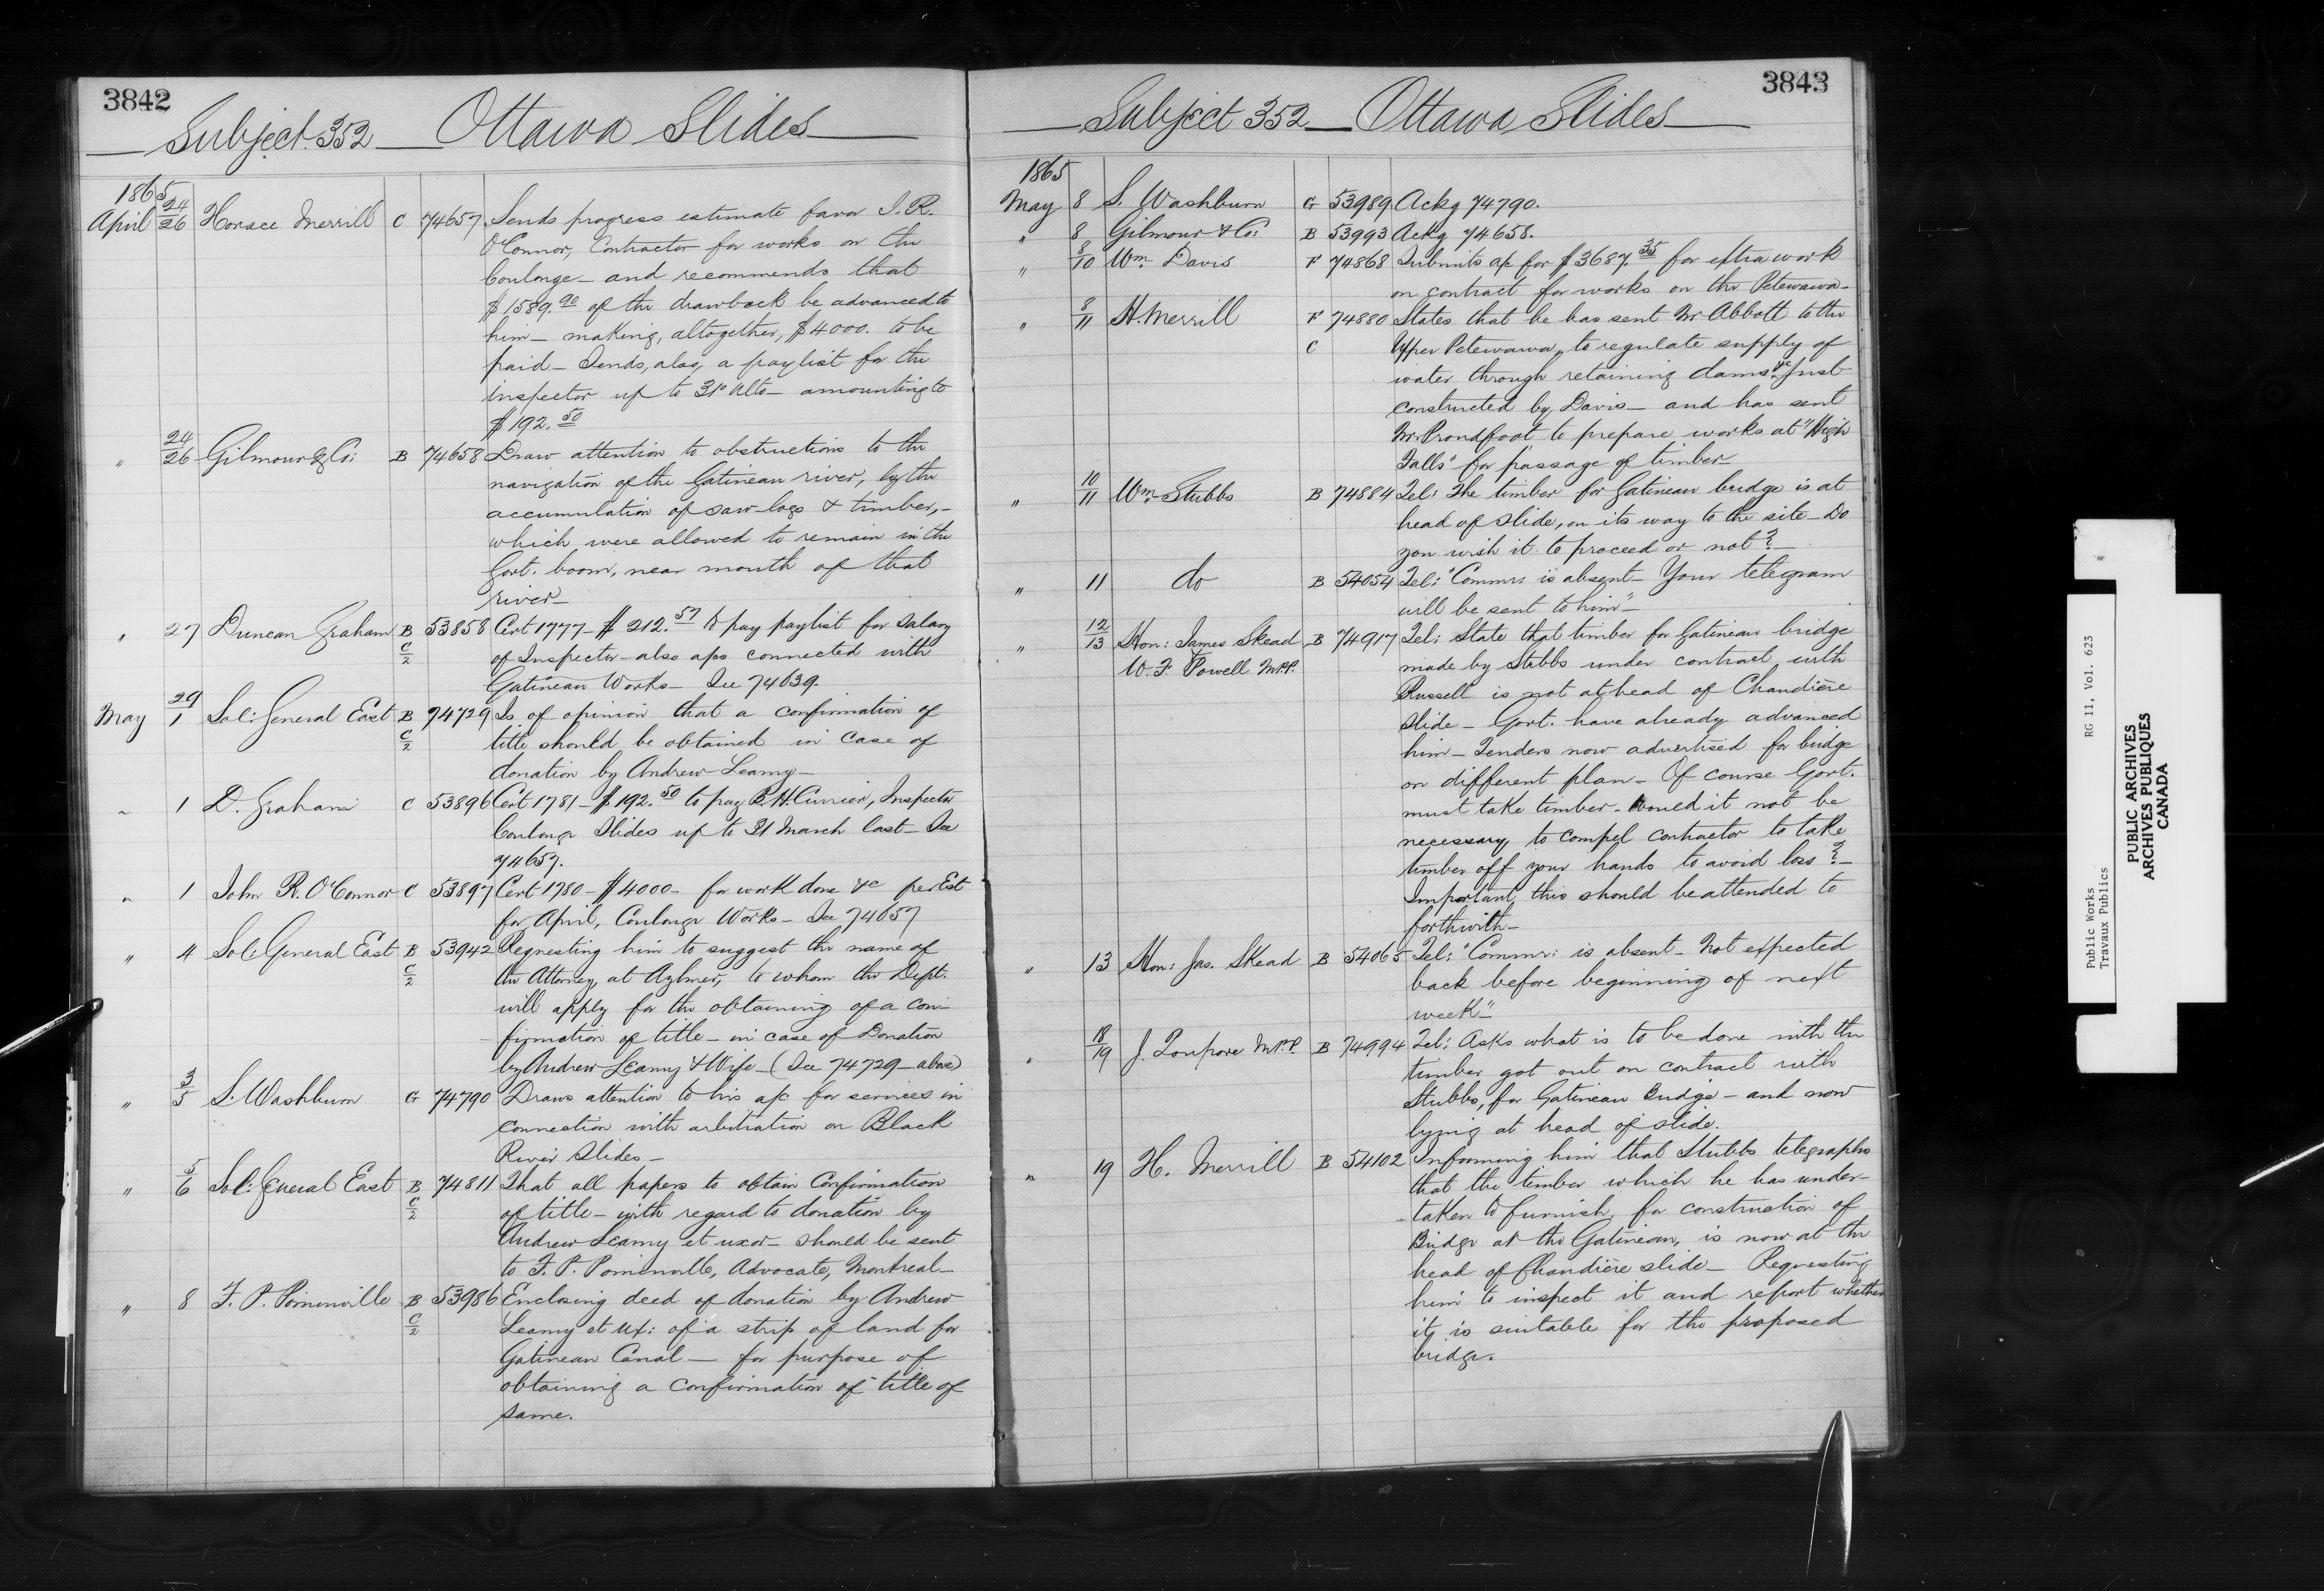 3842
Subject 352 Ottawa Slides
1865
April 24/26 Horace Merrill C 74657 Sends progress estimate favor J. R.
O'Connor, Contractor for works on the
Coulonge - and recommends that
$1589.90 of the drawback be advanced to
him - making, altogether, $4000. to be
paid - Sends, also, a paylist for the
inspector up to 31st Ulto - amounting to
$192.50
" 24/26 Gilmour & Co: B 74658 Draw attention to obstructions to the
navigation of the Gatineau river, by the
accumulation of saw-logs & timber, -
which were allowed to remain in the
Govt. boom, near mouth of that
river -
" 27 Duncan Graham B C/2 53858 Cert 1777 - $212.57 to pay paylist for salary
of Inspector - also a/cs connected with
Gatineau Works - See 74639.
May 29/1 Sol: General East B C/2 74729 Is of opinion that a confirmation of
title should be obtained in case of
donation by Andrew Leamy -
" 1 D. Graham C 53896 Cert 1781 - $192.50 to pay R. H. Currier, Inspector
Coulonge Slides up to 31 March last - See
74657.
" 1 John R. O'Connor C 53897 Cert 1780 - $4000 - for work done &c per Est
for April, Coulonge Works - See 74657
" 4 Sol: General East B C/2 53942 Requesting him to suggest the name of
the Attorney, at Aylmer, to whom the Dept.
will apply for the obtaining of a con-
firmation of title - in case of Donation
by Andrew Leamy & Wife - (See 74729 - above)
" 3/5 S. Washburn G 74790 Draws attention to his a/c for services in
connection with arbitration on Black
River Slides -
" 5/6 Sol: General East B C/2 74811 That all papers to obtain Confirmation
of title - with regard to donation by
Andrew Leamy et uxor - should be sent
to F. P. Pominville, Advocate, Montreal -
" 8 F. P. Pominville B C/2 53986 Enclosing deed of donation by Andrew
Leamy et Ux: of a strip of land for
Gatineau Canal - for purpose of
obtaining a confirmation of title of
same.
3843
Subject 352 Ottawa Slides
1865
May 8 S. Washburn G 53989 Ackg 74790.
" 8 Gilmour & Co: B 53993 Ackg 74658.
" 8/10 Wm. Davis F 74868 Submits a/c for $3687.35 for extra work
on contract for works on the Petewawa -
" 8/11 H. Merrill F C 74880 States that he has sent Mr Abbott to the
Upper Petewawa, to regulate supply of
water through retaining dams &c just
constructed by Davis - and has sent
Mr. Proudfoot to prepare works at "High
Falls" for passage of timber -
" 10/11 Wm. Stubbs B 74884 Tel: The timber for Gatineau bridge is at
head of slide, on its way to the site - Do
you wish it to proceed or not? -
" 11 do B 54054 Tel: "Commr: is absent - Your telegram
will be sent to him" -
" 12/13 Hon: James Skead B 74917 Tel: State that timber for Gatineau bridge
W. F. Powell M.P.P. made by Stubbs under contract with
Russell is not at head of Chaudière
slide - Govt. have already advanced
him - Tenders now advertised for bridge
on different plan - Of course Govt.
must take timber - Would it not be
necessary to compel contractor to take
timber off your hands to avoid loss? -
Important this should be attended to
forthwith -
" 13 Hon: Jas. Skead B 54065 Tel: "Commr: is absent - Not expected
back before beginning of next
week" -
" 18/19 J. Poupore M.P.P. B 74994 Tel: Asks what is to be done with the
timber got out on contract with
Stubbs, for Gatineau Bridge - and now
lying at head of slide.
" 19 H. Merrill B 54102 Informing him that Stubbs telegraphs
that the timber which he has under-
taken to furnish, for construction of
Bridge at the Gatineau, is now at the
head of Chaudière slide - Requesting
him to inspect it and report whether
it is suitable for the proposed
bridge.
Public Works RG 11, Vol. 623
Travaux Publics
PUBLIC ARCHIVES
ARCHIVES PUBLIQUES
CANADA